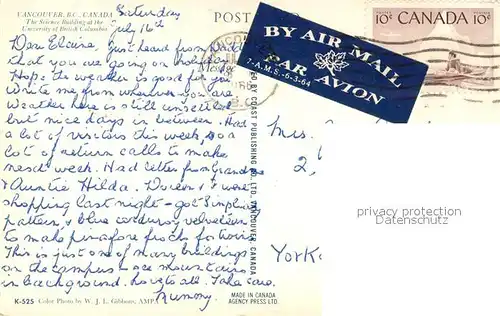 VANCOUVER, B.C., CANADA
The Science Building at the
University of British Columbia
Saturday
July 16th
POST
BY AIR MAIL
PAR AVION
7-A.M.S.-6-3-64
10¢ CANADA 10¢
just heard from
that you are going on holiday
Hope the weather is good for you
Write me from wherever you are
Weather here is still unsettled
but nice days in between. Had
a lot of visitors this week, so a
lot of return calls to make
next week. Had letter from Grandma
& Auntie Hilda. & I went
shopping last night - got Simplicity
pattern, & blue corduroy velveteen
to make pinafore frocks for twins
This is just one of many buildings
on the campus - see mountains
in background. Love to all. Take care.
Mummy.
K-525 Color Photo by W. J. L. Gibbons, AMPA
BY COAST PUBLISHING CO. LTD. VANCOUVER CANADA
MADE IN CANADA
AGENCY PRESS LTD.
Mrs.
2,
York
privacy protection